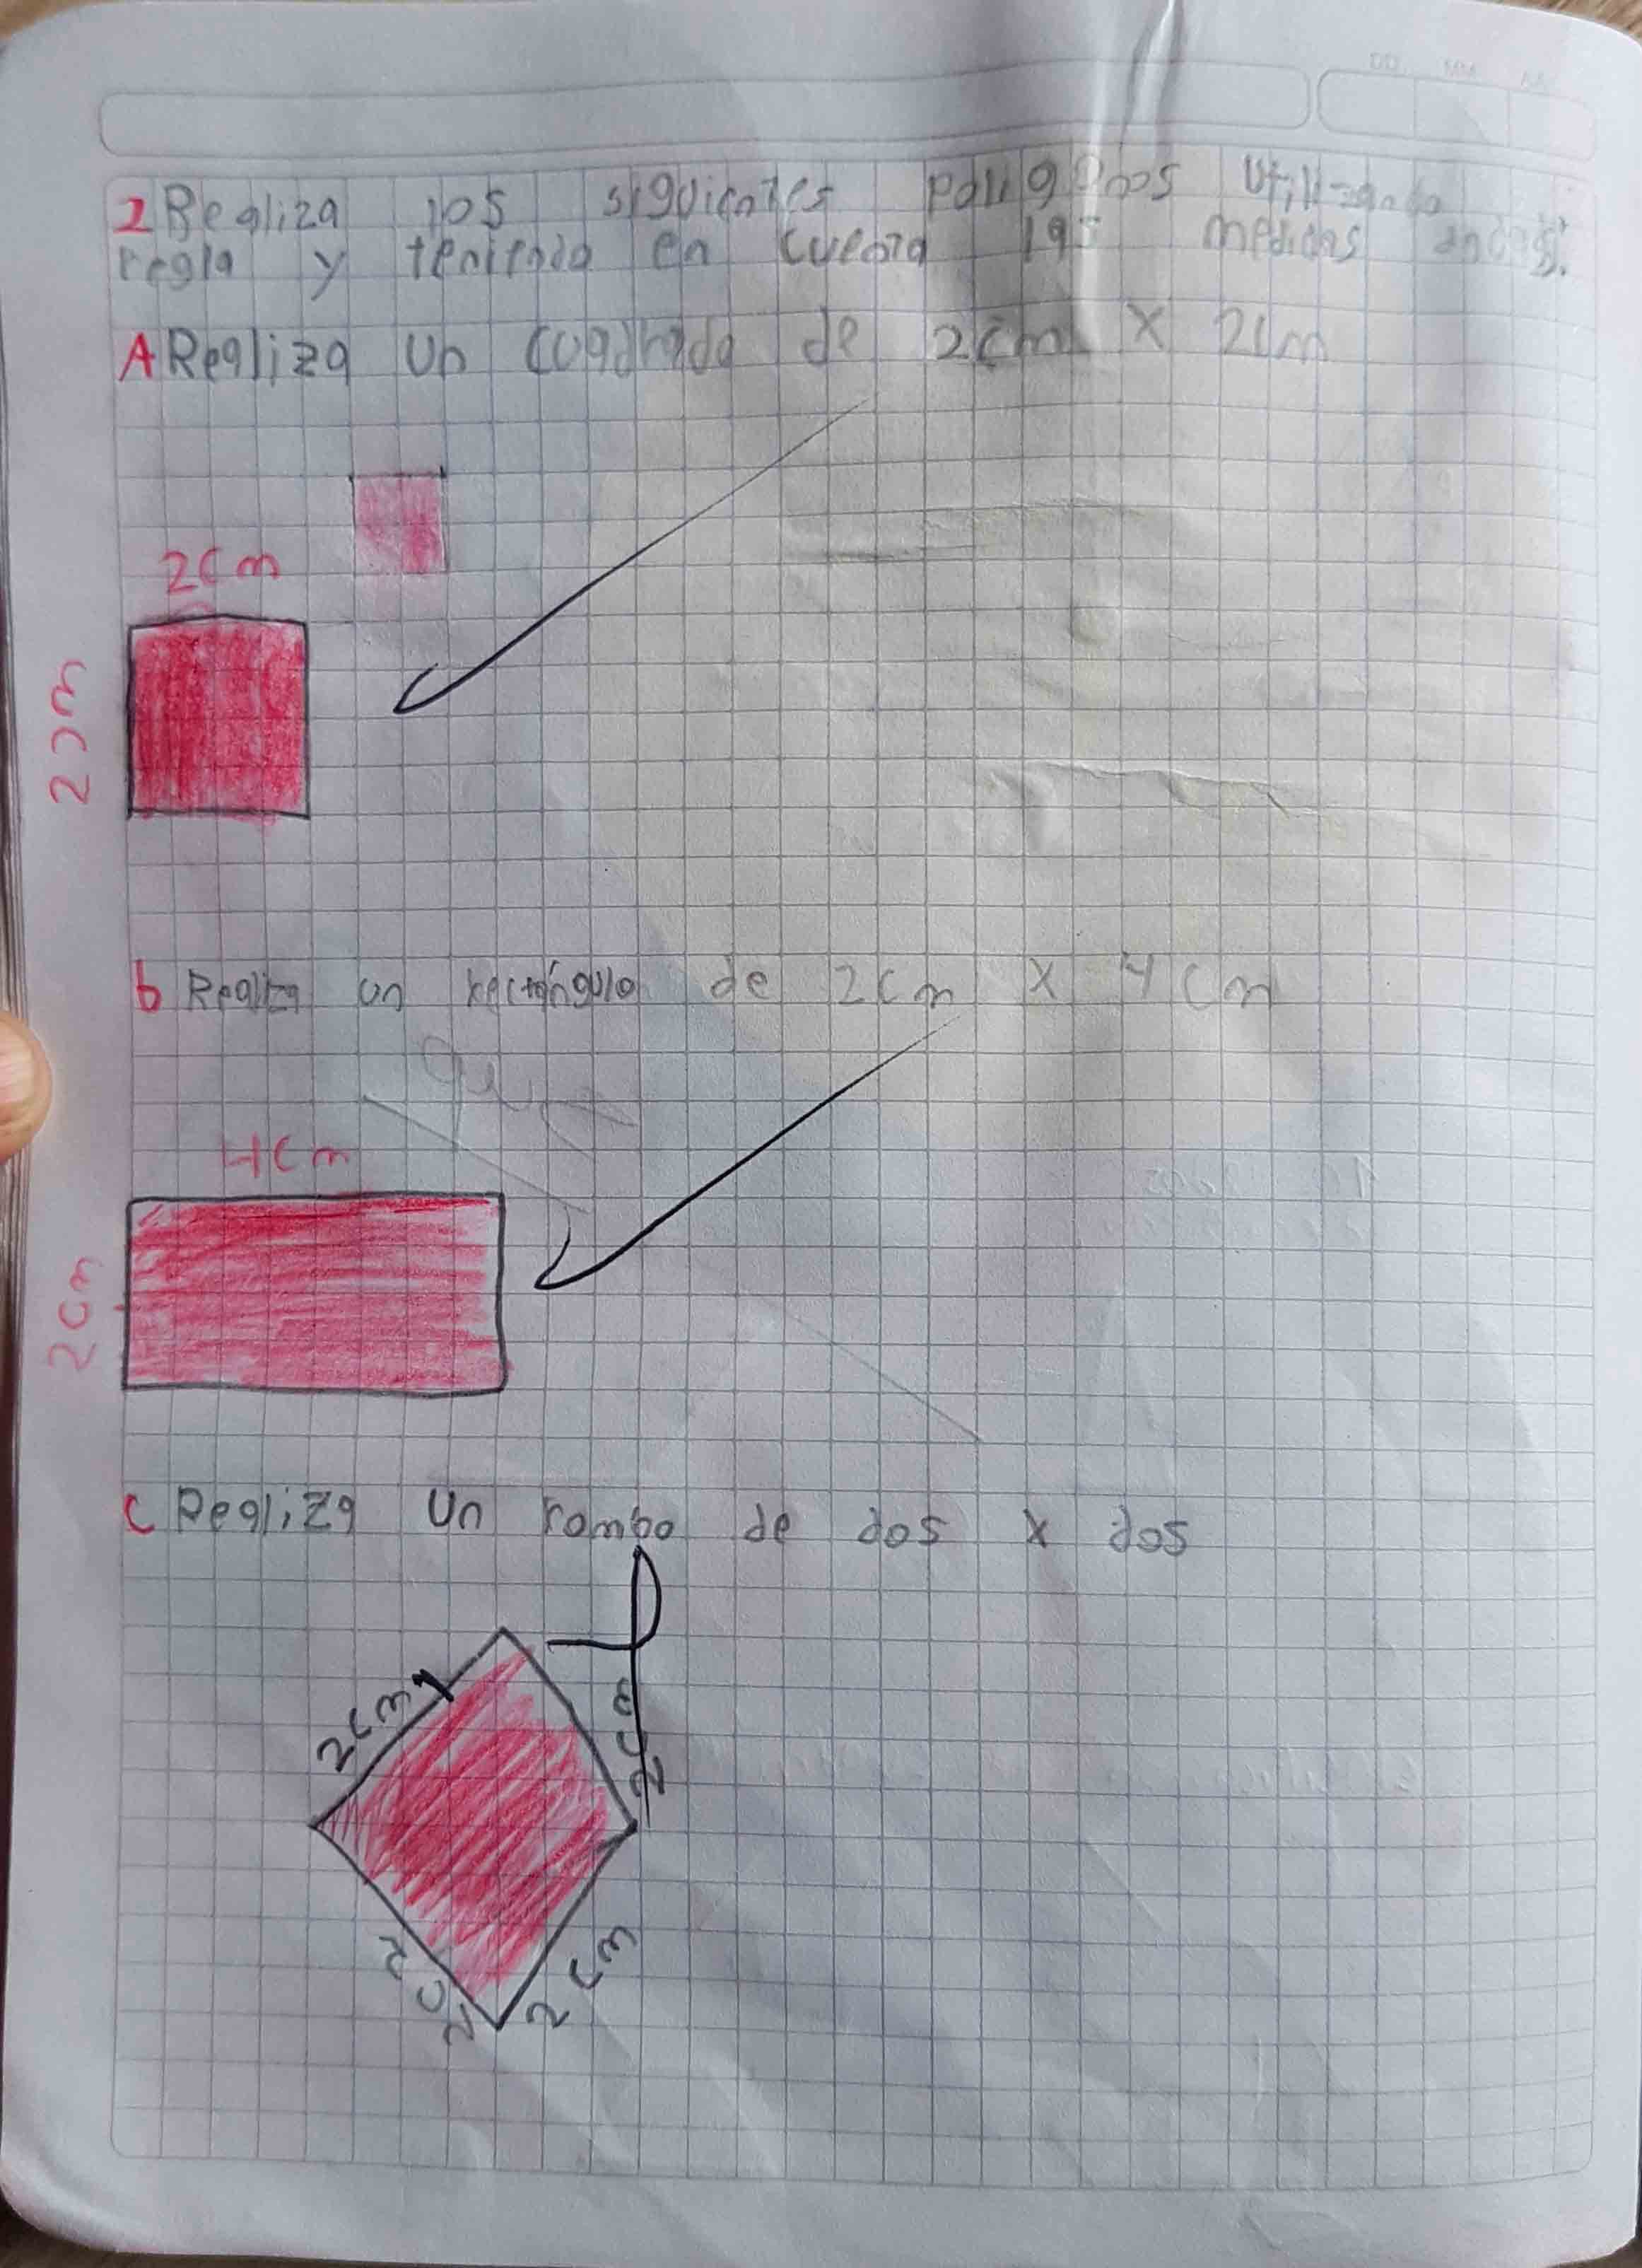 2 Realiza los siguientes poligonos Utilizando
regla y teniendo en cuenta las medidas
A Realiza un cuadrado de 2cm x 2cm
2cm
2cm
b Realiza un rectángulo de 2cm x 4cm
4cm
2cm
c Realiza un rombo de dos x dos
2cm
2cm
2cm